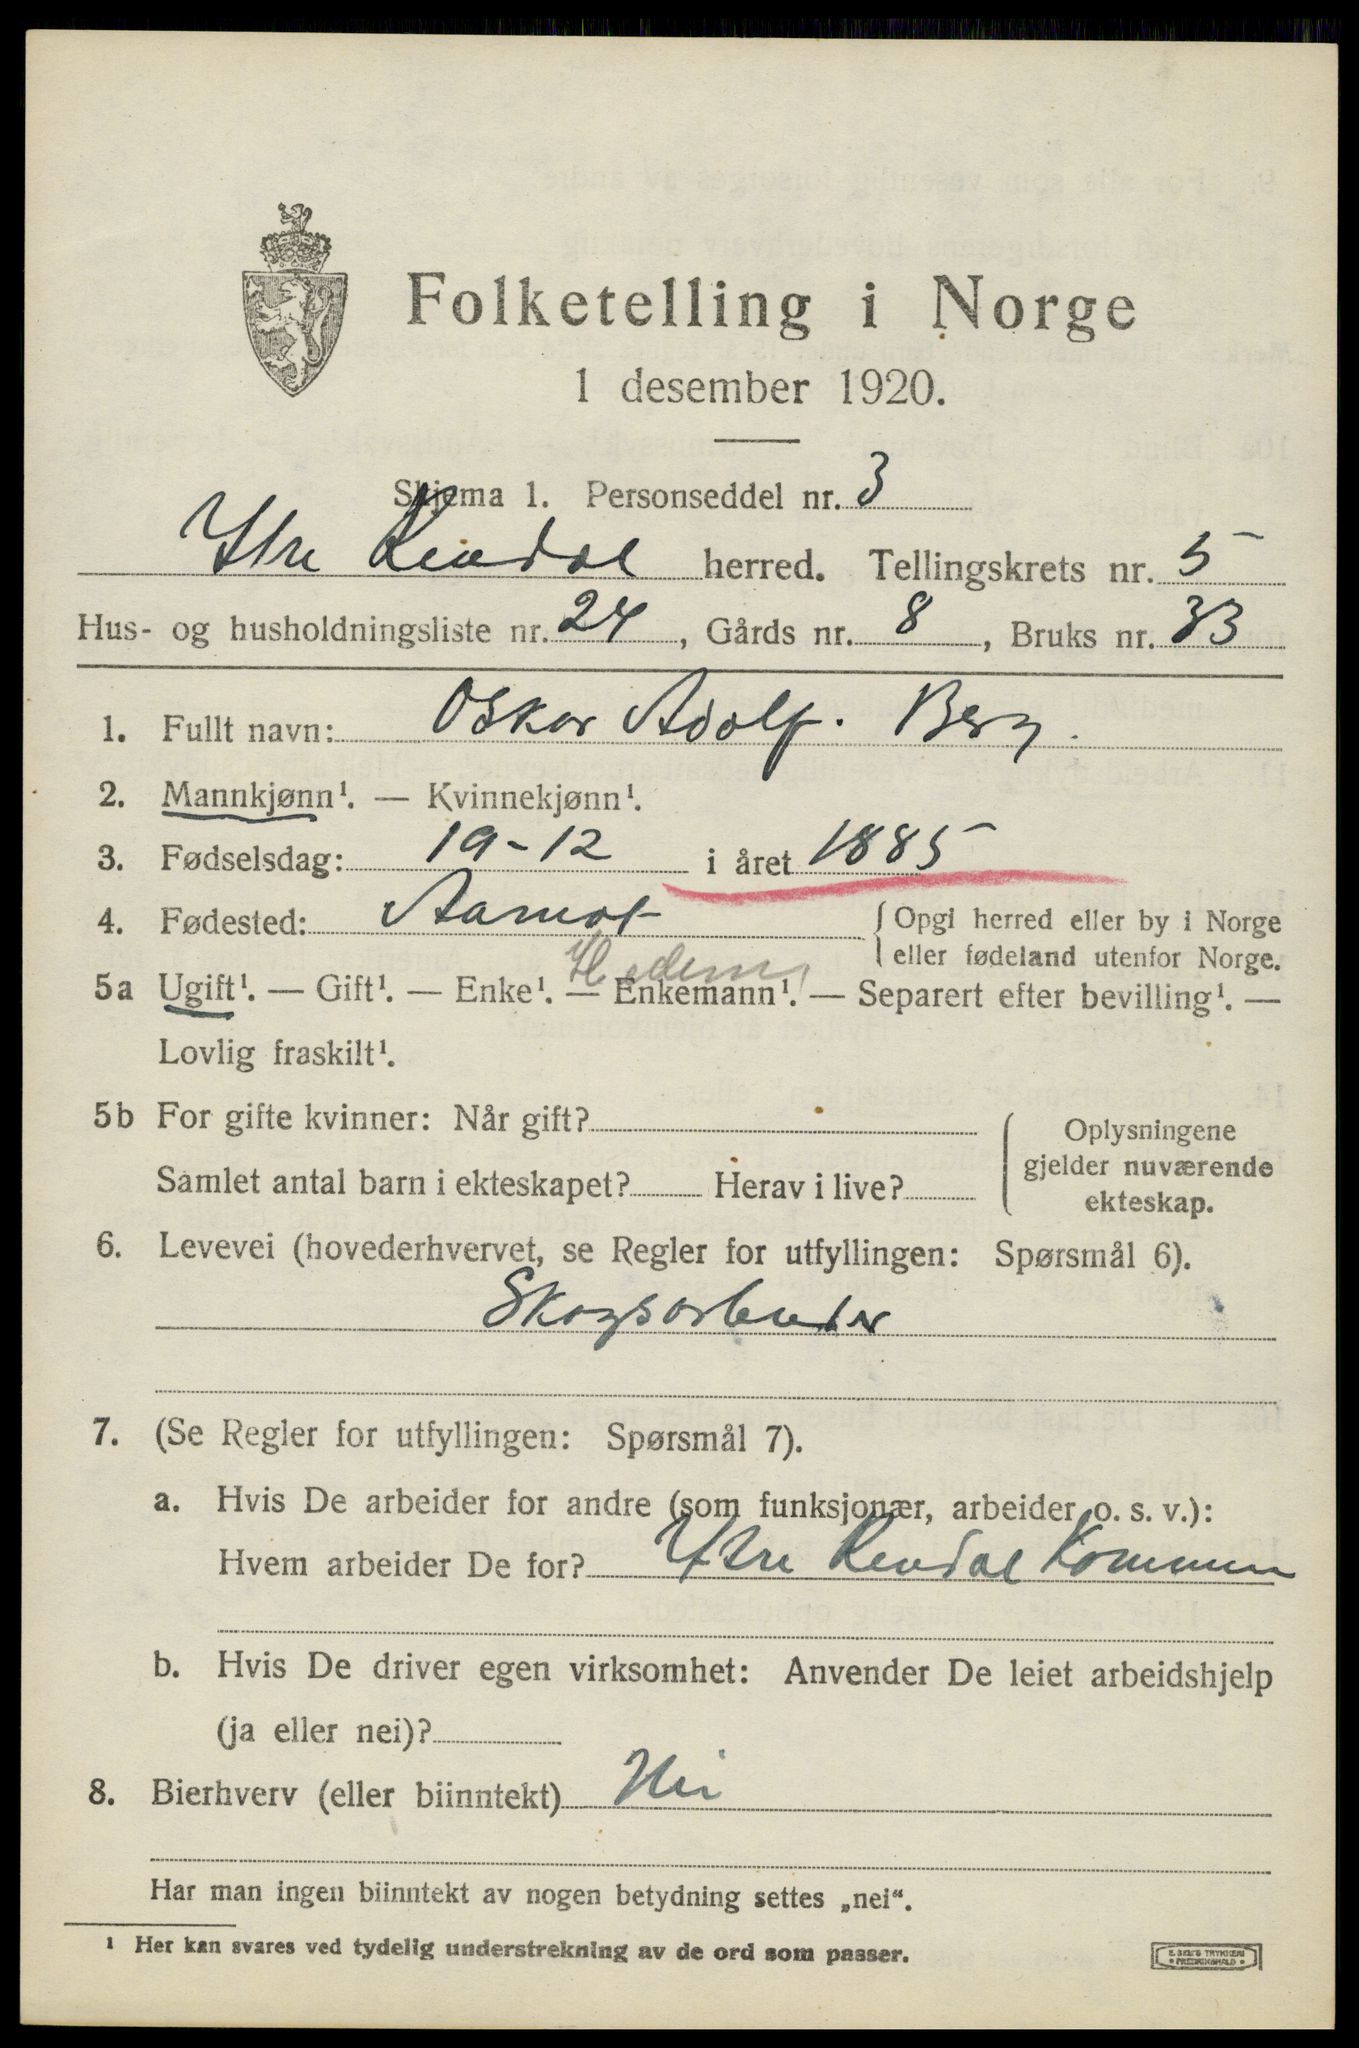 Folketelling i Norge
1 desember 1920.
Skjema 1. Personseddel nr. 3
Ytre Rendal herred. Tellingskrets nr. 5
Hus- og husholdningsliste nr. 24, Gårds nr. 8, Bruks nr. 33
1. Fullt navn: Oskar Adolf. Berg.
2. Mannkjønn¹. — Kvinnekjønn¹.
3. Fødselsdag: 19-12 i året 1885
4. Fødested: Aamot {Opgi herred eller by i Norge
eller fødeland utenfor Norge.
Hedem
5a Ugift¹. — Gift¹. — Enke¹. — Enkemann¹. — Separert efter bevilling¹. —
Lovlig fraskilt¹.
5b For gifte kvinner: Når gift?
Samlet antal barn i ekteskapet? Herav i live?
Oplysningene
gjelder nuværende
ekteskap.
6. Levevei (hovederhvervet, se Regler for utfyllingen: Spørsmål 6).
Skogsarbeider
7. (Se Regler for utfyllingen: Spørsmål 7).
a. Hvis De arbeider for andre (som funksjonær, arbeider o. s. v.):
Hvem arbeider De for? Ytre Rendal Kommun
b. Hvis De driver egen virksomhet: Anvender De leiet arbeidshjelp
(ja eller nei)?
8. Bierhverv (eller biinntekt) Nei
Har man ingen biinntekt av nogen betydning settes „nei".
¹ Her kan svares ved tydelig understrekning av de ord som passer.
E. SEM'S TRYKKERI
• FREDRIKSHALD •